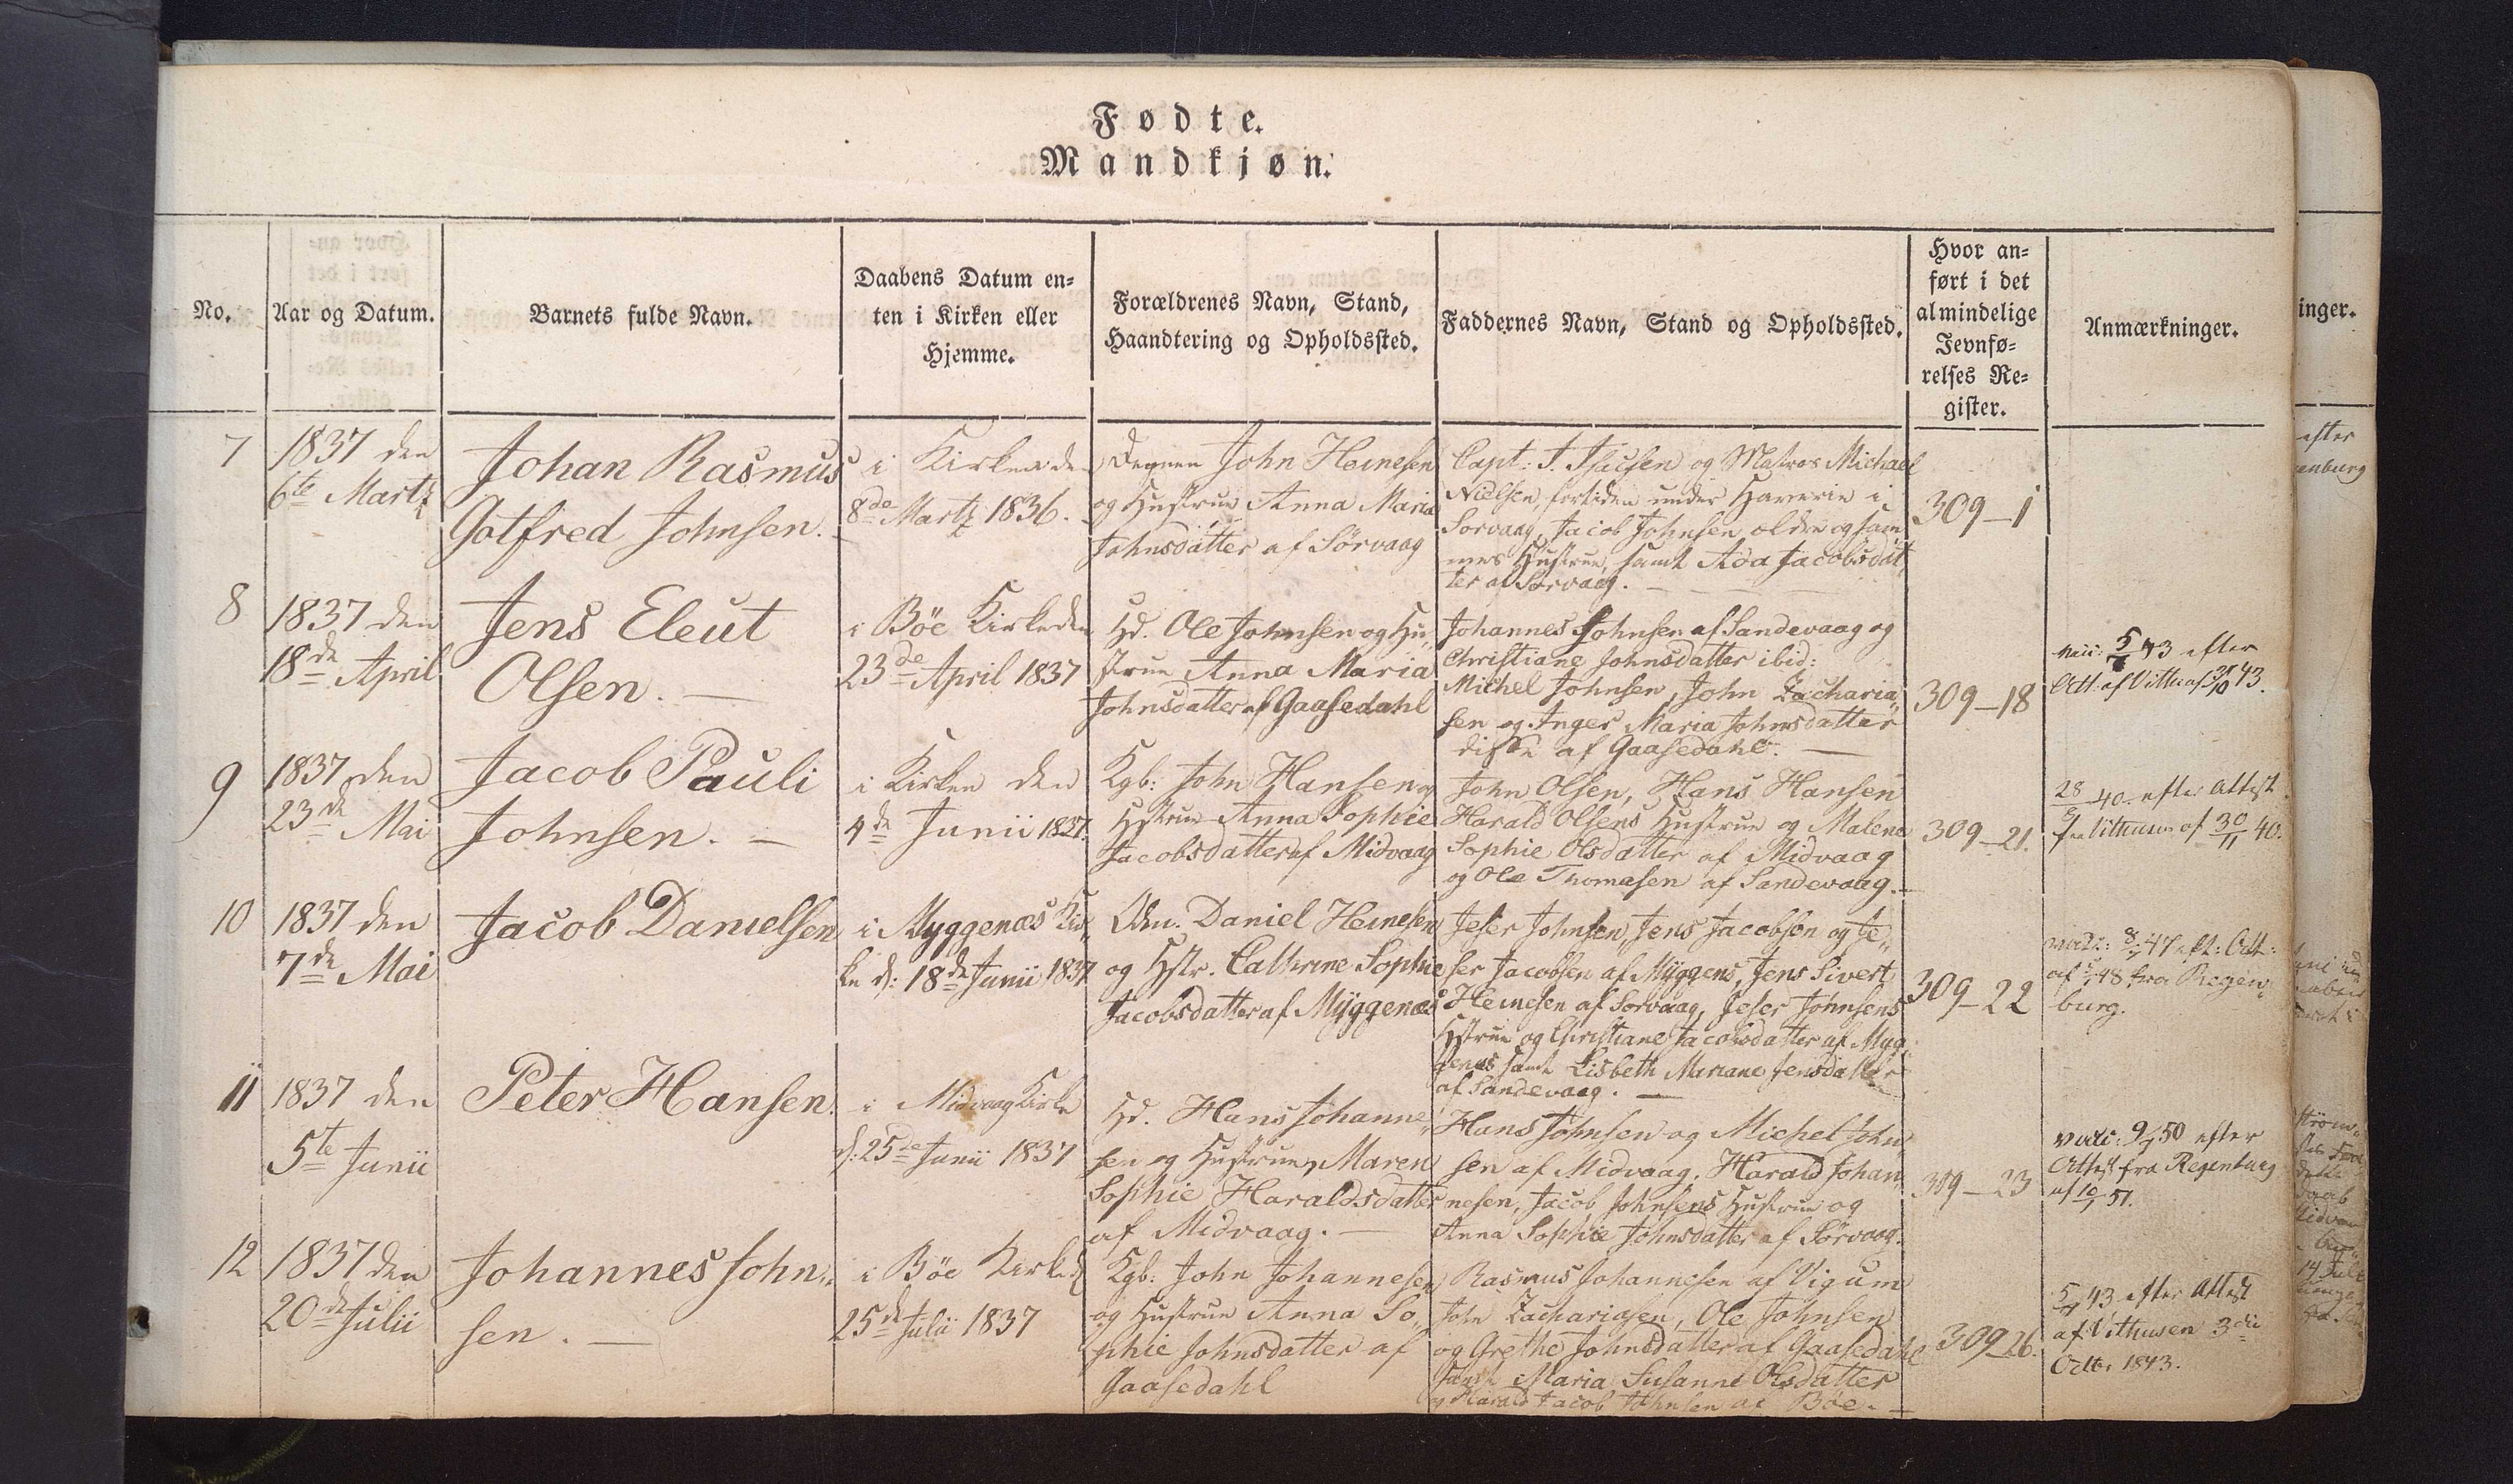 Fødte.
Mandkjøn.
No.
Aar og Datum.
Barnets fulde Navn.
Daabens Datum en-
ten i Kirken eller
Hjemme.
Forældrenes Navn, Stand,
Haandtering og Opholdssted.
Faddernes Navn, Stand og Opholdssted.
Hvor an-
ført i det
almindelige
Jevnfø-
relses Re-
gister.
Anmærkninger.
inger.
7
1837 den
6te Martz
Johan Rasmus
Gotfred Johnsen.
i Kirken den
8de Martz 1836.
Degnen John Heinesen
og Hustrue Anna Maria
Johnsdatter af Sørvaag
Capt: J. Isacsen og Matros Michael
Nielsen, fortiden under Havarie i
Sorvaag, Jacob Johnsen ældre og sam
mes Hustrue, samt Ada Jacobsdat
ter af Sorvaag.
309-1
8
1837 den
18de April
Jens Eleut
Olsen. —
i Böe Kirke den
23de April 1837
Hd. Ole Johnsen og Hu,,
strue Anna Maria
Johnsdatter af Gaasedahl
Johannes Johnsen af Sandevaag og
Christiane Johnsdatter ibid:
Michel Johnsen, John Zacharia,,
sen og Inger Maria Johnsdatter
disse af Gaasedahl. —
309-18
43 efter
Att. af 43.
9
1837 den
23de Mai
Jacob Pauli
Johnsen. —
i Kirken den
4de Junii 1837.
Kgb: John Hansen og
Hstrue Anna Sophie
Jacobsdatter af Midvaag
John Olsen, Hans Hansen
Harald Olsens Hustrue og Malene
Sophie Olsdatter af Midvaag
og Ole Thomasen af Sandevaag. —
309-21.
28/ 40. efter Attest
fra Vithusen af 30/11 40.
10
1837 den
7de Mai
Jacob Danielsen
i Myggenæs Kir,,
ke d: 18de Junii 1837
Daniel Heinesen
og Hstr. Cathrine Sophie
Jacobsdatter af Myggenæs
Jeser Johnsen, Jens Jacobsen og Je,,
ser Jacobsen af Myggens, Jens Sivert
Heinesen af Sorvaag, Jeser Johnsens
Hstrue og Christiane Jacobsdatter af Myg
genæs samt Lisbeth Mariane Jensdatter
af Sandevaag. —
309-22
47 eft: Att:
af 48 fra Regen,,
burg.
11
1837 den
5te Junii
Peter Hansen.
i Midvaag Kirke
d: 25de Junii 1837
Hd. Hans Johanne,,
sen og Hustrue Maren
Sophie Haraldsdatter
af Midvaag. —
Hans Johnsen og Michel John,,
sen af Midvaag, Harald Johan,,
nesen, Jacob Johnsens Hustrue og
Anna Sophie Johnsdatter af Sörvaag.
309-23
50 efter
Attest fra Regenburg
af 51.
12
1837 den
20de Julii
Johannes John,,
sen. —
i Böe Kirke d
25de Julii 1837
Kgb: John Johannesen
og Hustrue Anna So,,
phie Johnsdatter af
Gaasedahl
Rasmus Johannesen af Vigum
John Zachariasen, Ole Johnsen
og Grethe Johnsdatter af Gaasedahl
samt Maria Susanne Olsdatter
og Harald Jacob Johnsen af Böe. —
309-26.
43 efter Attest
af Vithusen 3die
Octbr 1843.